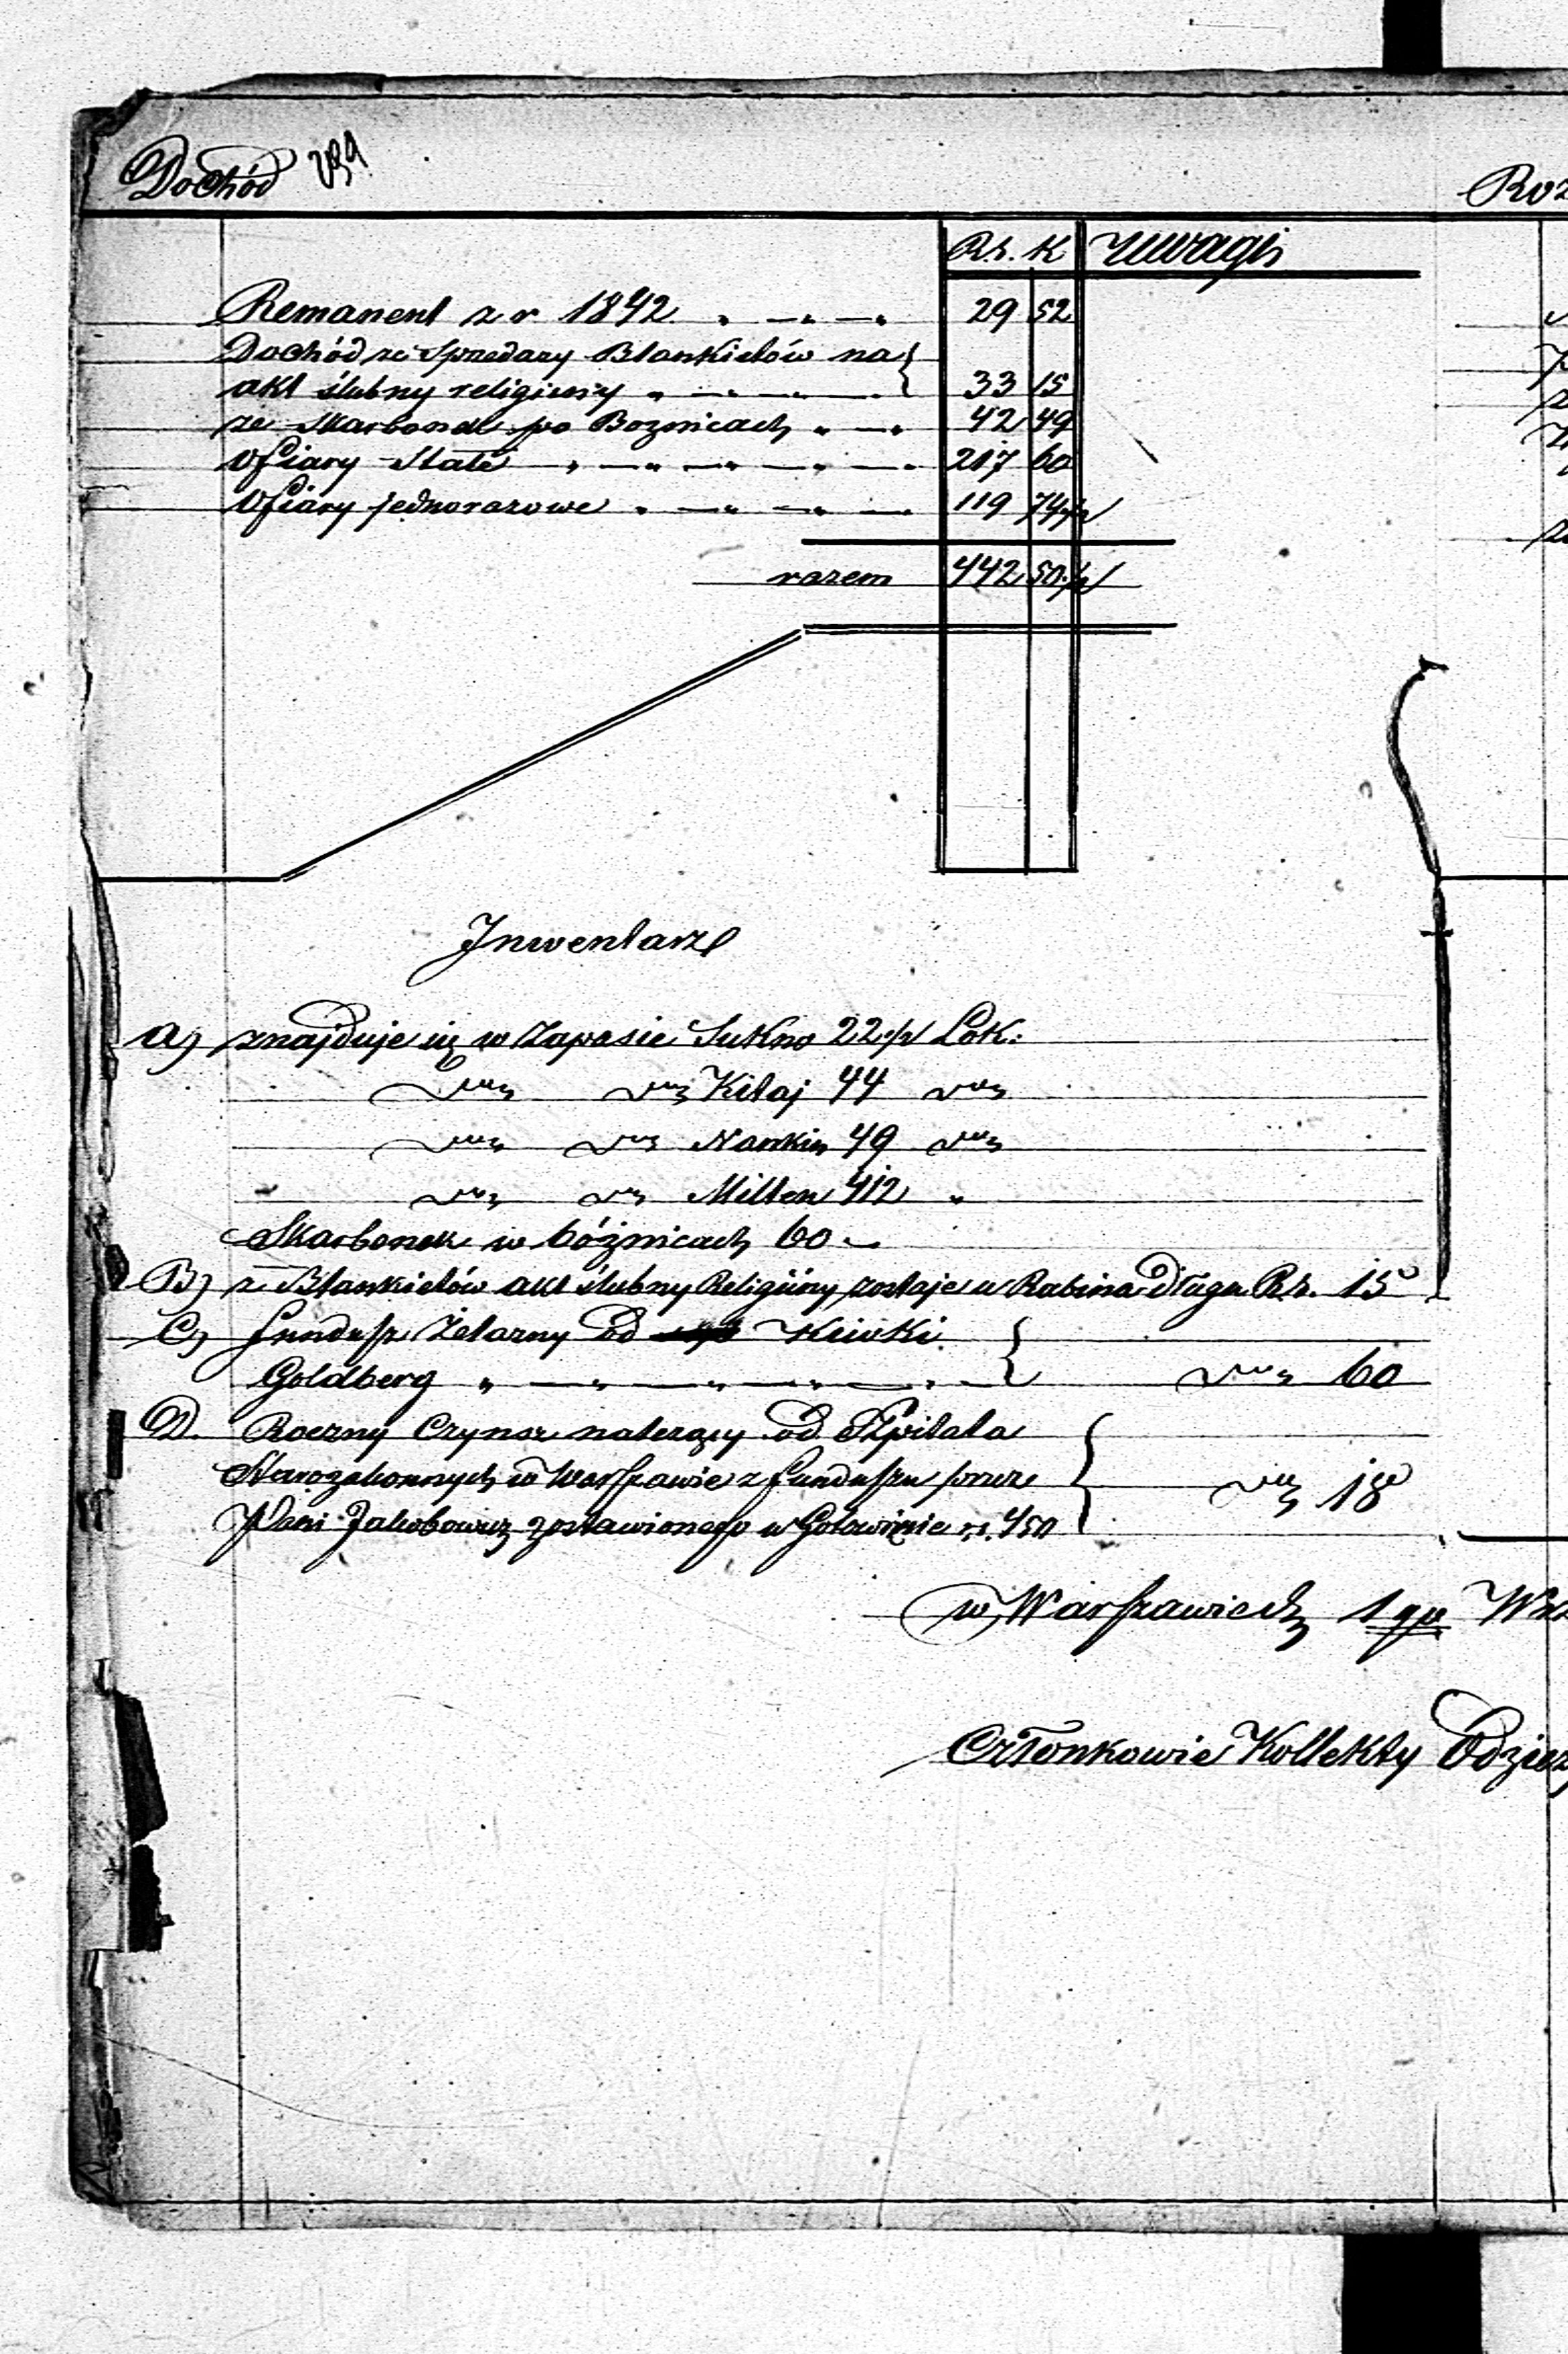 Dochód 239
Roz
Rs. K Uwagi
Remanent z r 1842 29 52
Dochód ze Sprzedaży Blankietów na
akt ślubny religijny 33 15
ze Skarbonek po Boznicach 42 49
Ofiary Stałe 217 60
Ofiary jednorazowe 119 74½
razem 442 50½
Inwentarz
a) znajduje się w Zapasie Sukno 22½ Łok:
Kitaj 44
Nankin 49
Mitten 412 "
Skarbonek w bóżnicach 60
B) z Blankietów akt ślubny Religijny zostaje u Rabina Długu Rs. 15
C) fundusz Żelazny Od
Goldberg 60
D. Roczny Czynsz należący od Szpitala
Starozakonnych w Warszawie z funduszu przez
Jakubowicz zostawionego w Gotowiznie rs. 450 18
w Warszawie d. 1go
Członkowie Kollekty Odzież